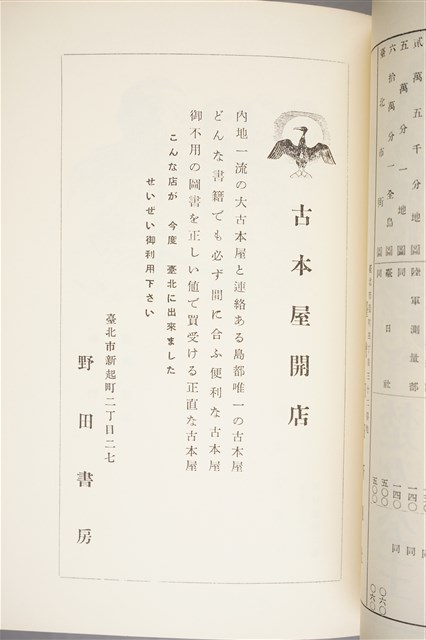 貳萬五千分一地圖 陸軍測量部
五萬分一地圖 同
六拾萬分一全島圖 同
臺北市街圖 臺日社
一四〇 同
一四〇 同
五〇〇
五〇〇
〇六〇
〇六〇
古本屋開店
內地一流の大古本屋と連絡ある島都唯一の古本屋
どんな書籍でも必ず間に合ふ便利な古本屋
御不用の圖書を正しい値で買受ける正直な古本屋
こんな店が 今度 臺北に出來ました
せいぜい御利用下さい
臺北市新起町二丁目二七
野田書房